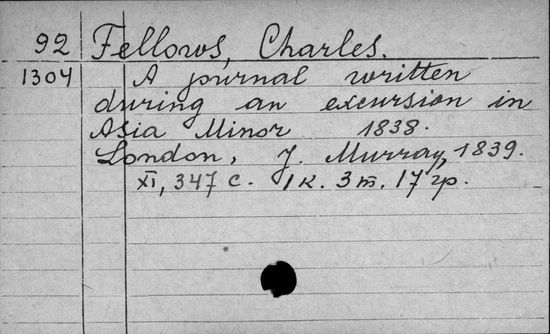 92 Fellows, Charles.
1304 A journal written
during an excursion in
Asia Minor 1838.
London, J. Murray, 1839.
XI, 347 с. 1 к. 3 т. 17 гр.